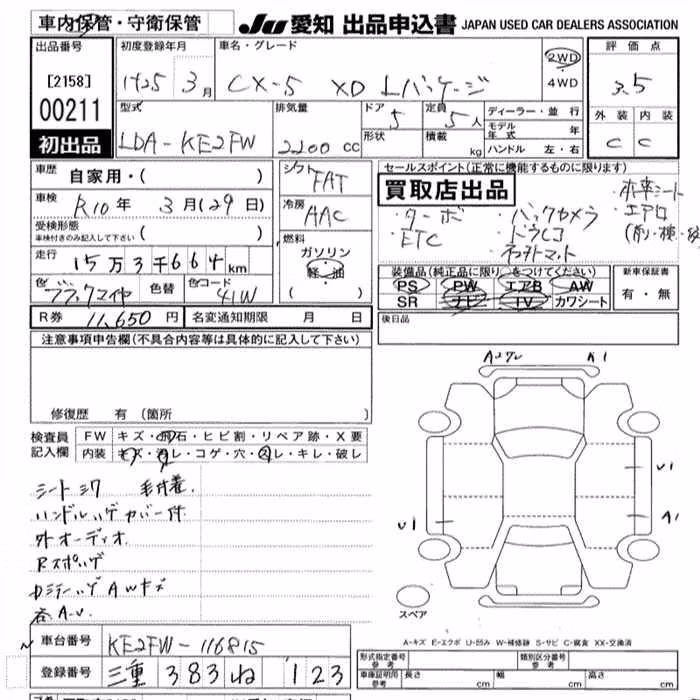 車内保管・守衛保管
JU 愛知 出品申込書 JAPAN USED CAR DEALERS ASSOCIATION
出品番号 初度登録年月 車名・グレード 評価点
[2158] H25 3月 CX-5 XD Lパッケージ 2WD 4WD 3.5
00211 型式 排気量 ドア 5 定員 5人 ディーラー・並行 外装 内装
初出品 LDA-KE2FW 2200cc 形状 積載 kg モデル年式 年 C C
ハンドル 左・右
車歴 自家用・( ) シフト FAT セールスポイント(正常に機能するものに限ります)
買取店出品 ・本革シート
車検 R10年 3月(29日) 冷房 AAC ・ターボ ・バックカメラ ・エアロ
受検形態 ( ) ・ETC ・ドラレコ
車検付きのみ記入して下さい 燃料 ・フロアマット
走行 15万3千664km ガソリン 装備品(純正品に限り○をつけてください) 新車保証書
色 ブラックマイカ 色替 色コード 41W 軽・油 ( ) PS PW エアB AW 有・無
SR ナビ TV カワシート
R券 11,650円 名変通知期限 月 日 後日品
注意事項申告欄(不具合内容等は具体的に記入して下さい)
修復歴 有 (箇所 )
検査員 FW キズ・飛石・ヒビ割・リペア跡・X要
記入欄 内装 キズ・汚レ・コゲ・穴・スレ・キレ・破レ
A1
U1
U1 A1
シートシワ 毛付着
ハンドルハゲ カバー付
外オーディオ
Rスポハゲ
カラーハゲ AWキズ
各A・U
スペア
A-キズ E-エクボ U-凹み W-補修跡 S-サビ C-腐食 XX-交換済
車台番号 KE2FW-116815 型式指定番号 参考 類別区分番号 参考
登録番号 三重 383 ね 123 車庫証明用 参考 長さ cm 幅 cm 高さ cm